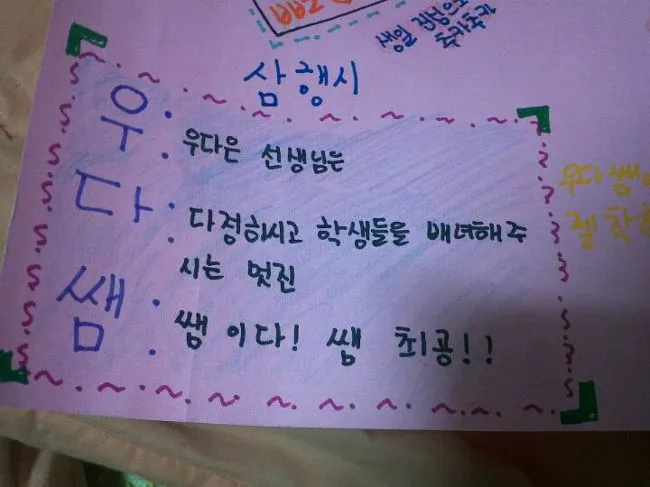 생일 진심으로
축카축카
삼행시
우: 우다은 선생님은
다: 다정하시고 학생들을 배녀해주
시는 멋진
쌤: 쌤이다! 쌤 최공!!
우다쌤